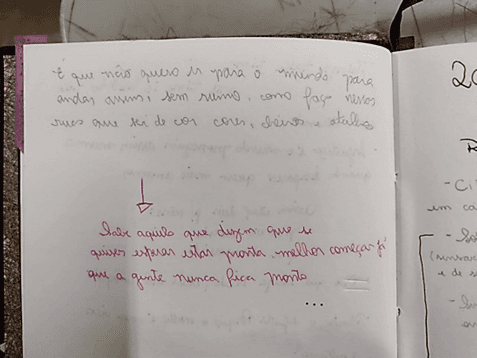 E que não quero ir para o mundo para
andar assim, sem rumo, como faço nessas
ruas que sei de cor cores, becos e atalhos
Sabe aquilo que dizem que se
quiser esperar estar pronta, melhor começar já
que a gente nunca fica pronto
...
20
- Ci
em ca
e de s